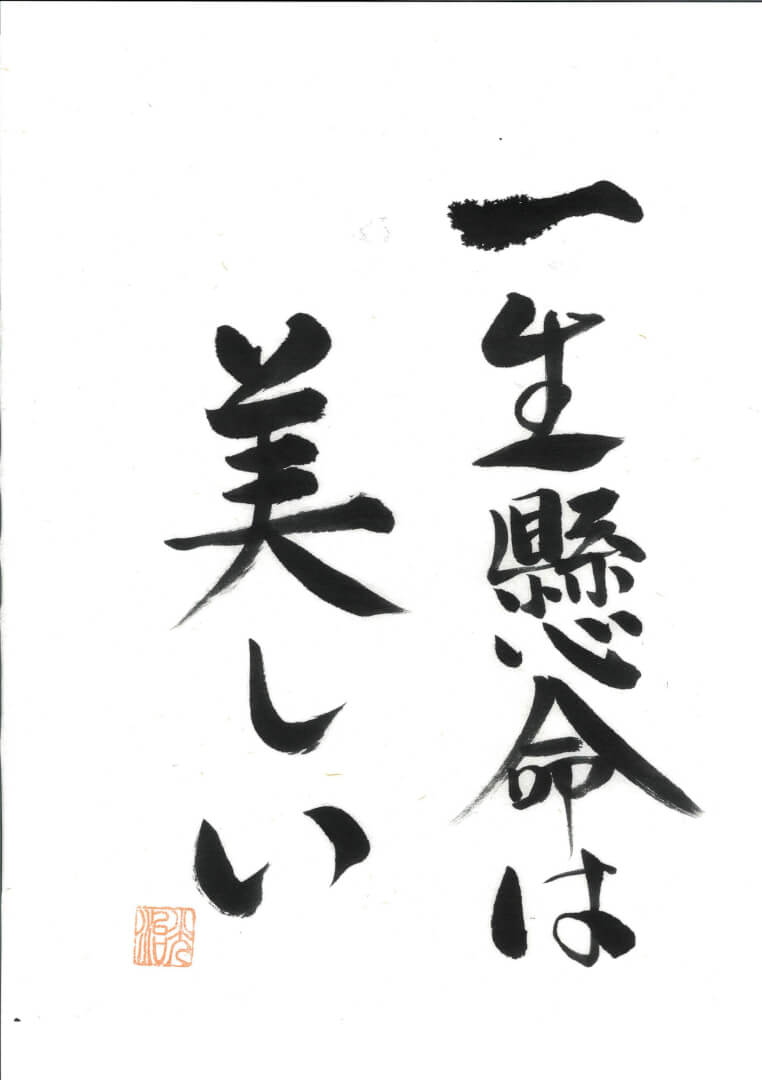 一生懸命は
美しい